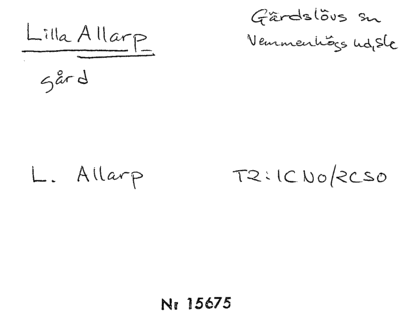 Lilla Allarp
gård
Gärdslövs sn
Vemmenhögs hd, Sk
L. Allarp
T2:1CNO/2CSO
Nr 15675